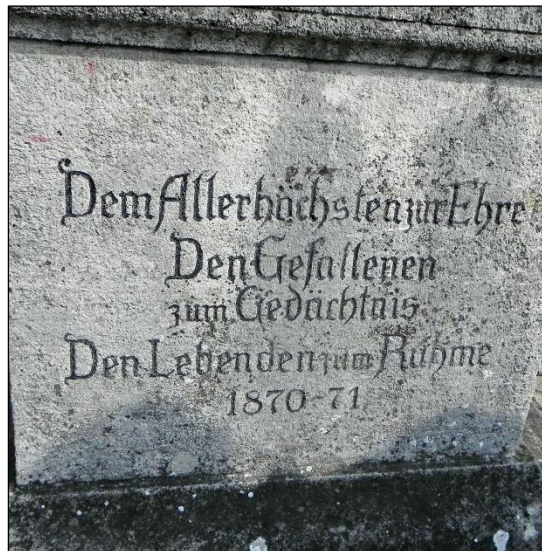 Dem Allerhöchsten zur Ehre
Den Gefallenen
zum Gedächtnis
Den Lebenden zum Ruhme
1870-71